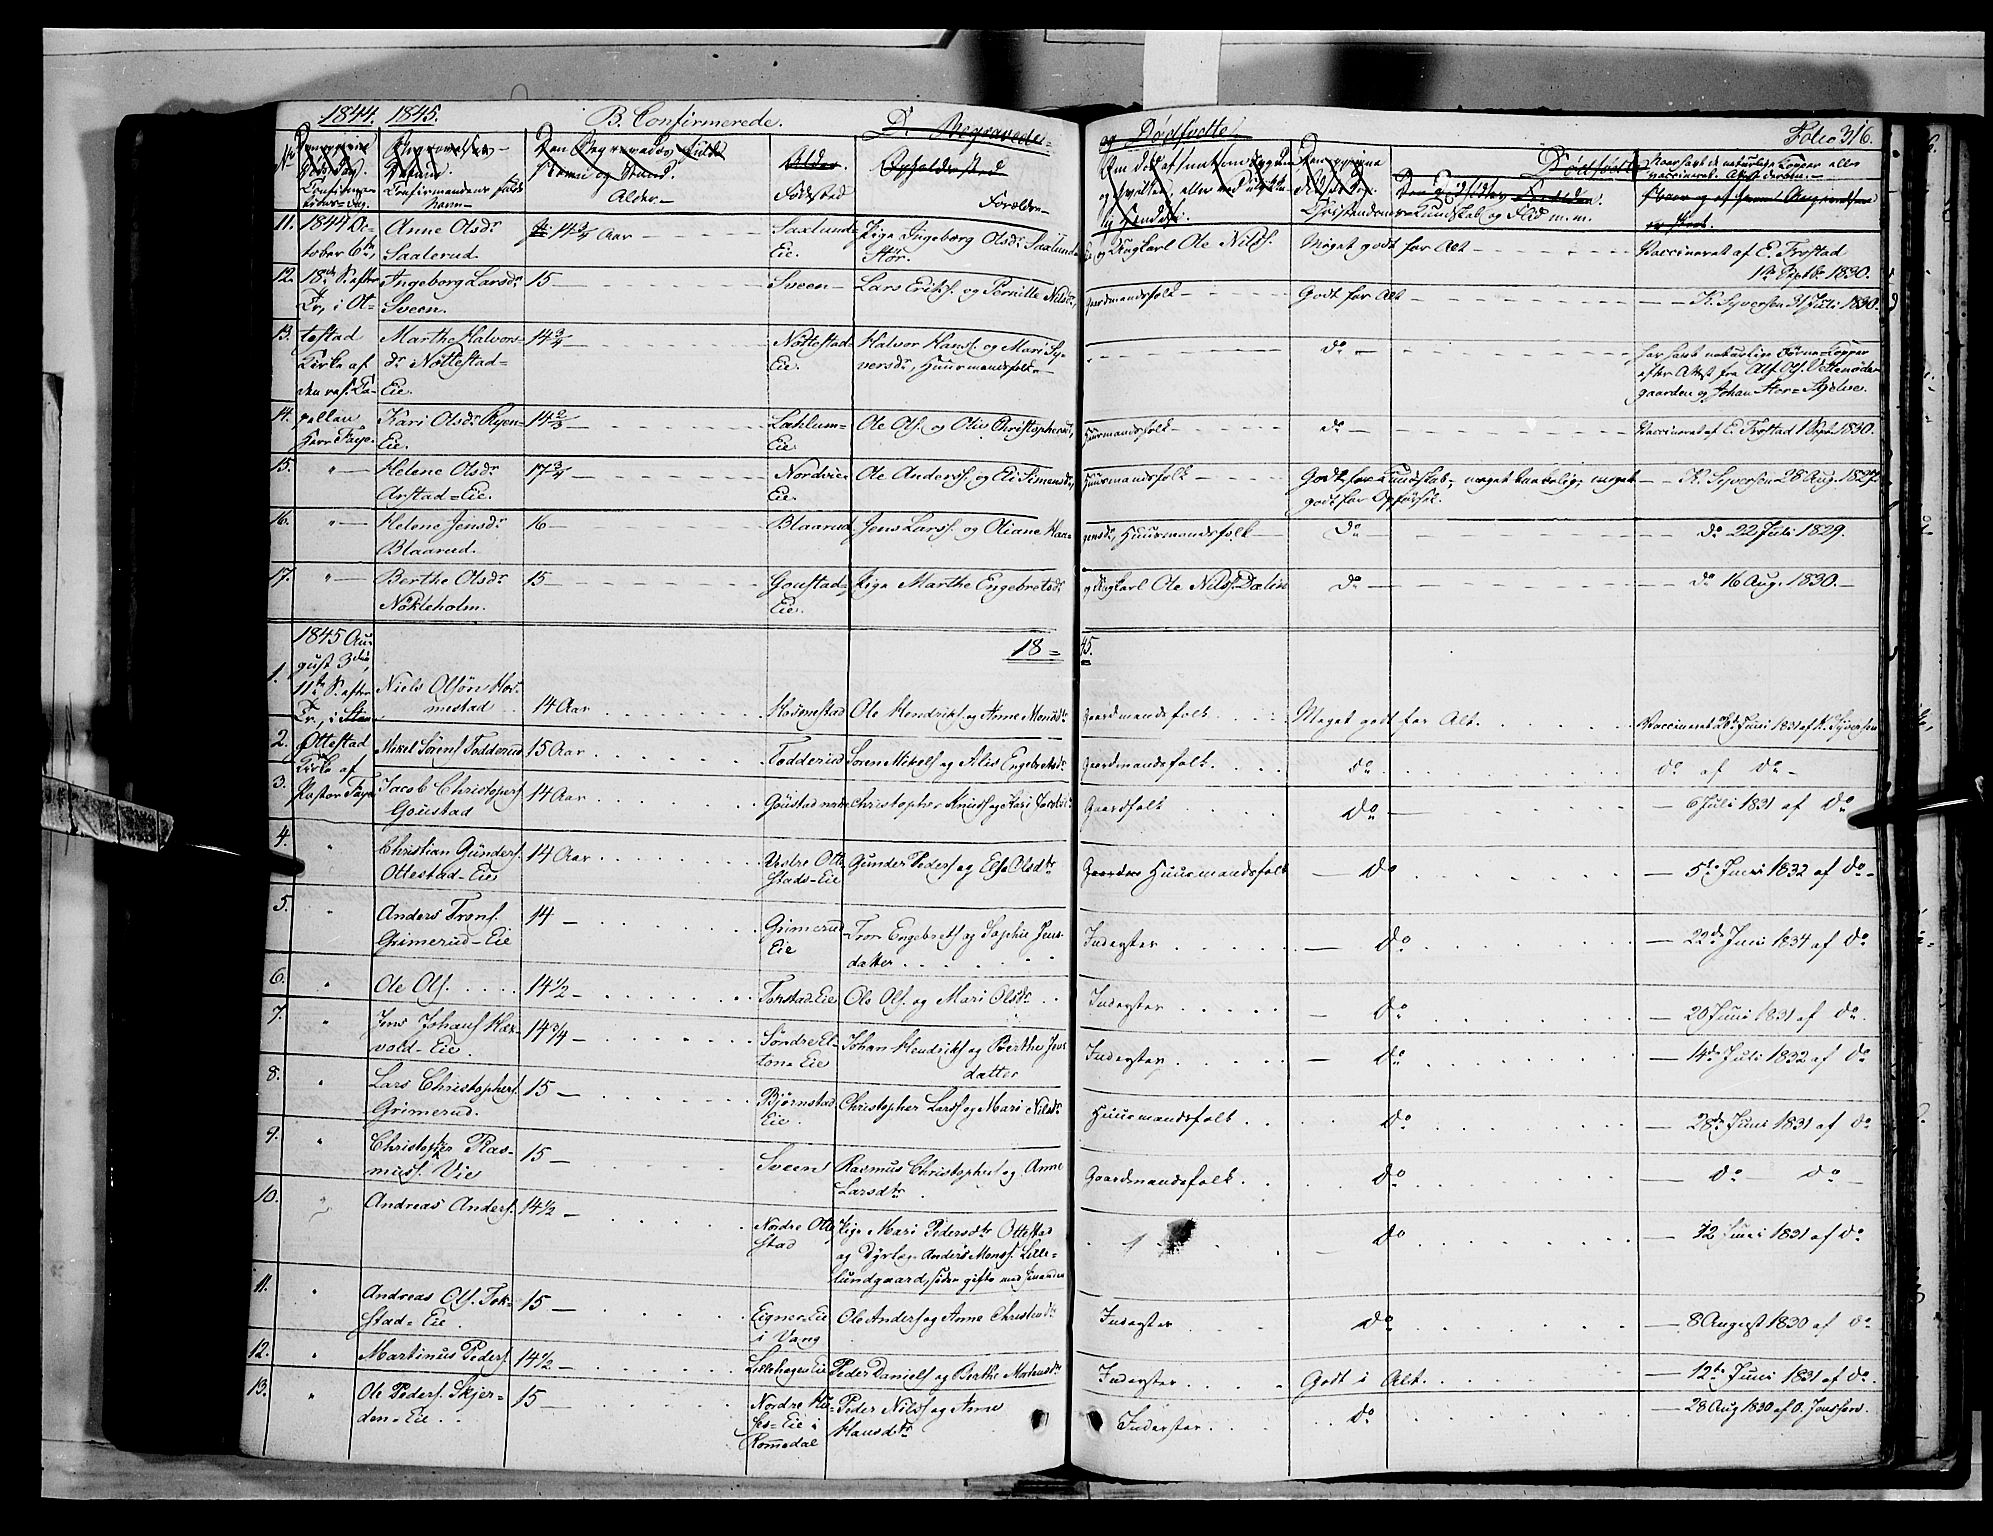 1844. 1845. B. Confirmerede. D. Begravede og Dødfødte. Folio 316.
No Confirmations-Dag. Confirmandens fulde Navn Alder Fødested Forældre Christendoms Kundskab og Flid m.m.
11. 1844 October 6te, Anne Olsdr Saalerud 14 3/4 Aar Saxlund Eie. Pige Ingeborg Olsdr Saxlund og Ungkarl Ole Nilss. Meget godt for Alt Vaccineret af E. Frostad
1te Septbr 1830.
12. 18de S. efter Tr. i Ot- Ingeborg Larsdr Sveen. 15 Sveen Lars Eriks. og Pernille Nilsdr, Gaardmandsfolk Godt for Alt K. Syversen 31 Juli 1830.
13. testad Kirke af den res. Ca- Marthe Halvorsdr Nöttestad-Eie. 14 3/4 Nöttestad-Eie. Halvor Hans. og Mari Syversdr, Huusmandsfolk do har havt naturlige Børne-Kopper
efter Attest fra
14. pellan Herr Faye. Kari Olsdr Ryen-Eie. 14 2/3 Lahlum-Eie. Ole Ols. og Olia Christophersdr, Huusmandsfolk do Vaccineret af E. Frostad 1 Sept 1830.
15. " Helene Olsdr Arstad-Eie. 17 3/4 Nordvie-Eie. Ole Anderss. og Eli Simensdr, Huusmandsfolk Godt for Kundskab, meget
godt for Opførsel. K. Syversen 28 Aug.
16. " Helene Jensdr Blaarud. 16 Blaarud Jens Larss. og Oliane Haagensdr, Huusmandsfolk do do 22 Juli 1829.
17. " Berthe Olsdr Nökleholm. 15 Goustad-Eie. Pige Marthe Engebretsdr og Ungkarl Ole Nilss. Dælin do do 16 Aug. 1830.
1845 August 3die, 18 = 45.
1. 11te S. efter Tr. i Niels Olsön Hornmestad 14 Aar Ole Hendriks. og Anne Monsdtr Gaardmandsfolk Meget godt for Alt. Vaccineret Juni 1831 af K. Syversen
2. Ottestad Mikel Sörens. Fodderud 15 Aar Fodderud Sören Mikels. og Alis Engebretsdr Gaardmandsfolk do do af do
3. Kirke af Pastor Faye Jacob Christophers. Goustad 14 Aar Goustad Christopher Knuds. og Kari Gaardfolk do 6 Juli 1831 af do
4. " Christian Gunders. Ottestad-Eie 14 Aar Vestre Ottestads-Eie Gunder Peders. og Else Olsdtr Huusmandsfolk do 5te Juni 1832 af do
5. " Anders Trons. Grimerud-Eie 14 Grimerud Eie Tron Engebrets. og Sophie Jensdatter Inderster do 22de Juni 1834 af do
6. " Ole Ols. 14 1/2 Tokstad-Eie Ole Ols. og Mari Olsdr Inderster do 20 Juni 1831 af do
7. " Jens Johans. Hækvold-Eie. 14 3/4 Söndre Elton-Eie Johan Hendriks. og Berthe Jensdatter Inderster do 14de Juli 1832 af do
8. " Lars Christophers. Grimerud. 15 Björnstad Eie. Christopher Larss. og Mari Nilsdr Huusmandsfolk do 28de Juni 1831 af do
9. " Christopher Rasmuss. Vie 15 Sveen Rasmus Christophers. og Anne Larsdtr Gaardmandsfolk do do do
10. " Andreas Anders. 14 1/2 Nordre Ottestad Pige Mari Pedersdtr Ottestad
og Anders Monss. Lille-
lundgaard, siden gifte med hinanden do 12 Juni 1831 af do
11. " Andreas Ols. Tokstad-Eie. 15 Eigner-Eie i Vang Ole Anders. og Anne Christensdtr Inderster do 8 August 1830 af do
12. " Martinus Peders. 14 1/2 Lillehagen Eie Peder Daniels. og Berthe Inderster Godt i Alt. 12te Juni 1831 af do
13. " Ole Peders. Skjerden-Eie. 15 Nordre -Eie i Romedal Peder Nilss. og Anne Hansdtr Inderster do 28 Aug 1830 af O. Jonssen.